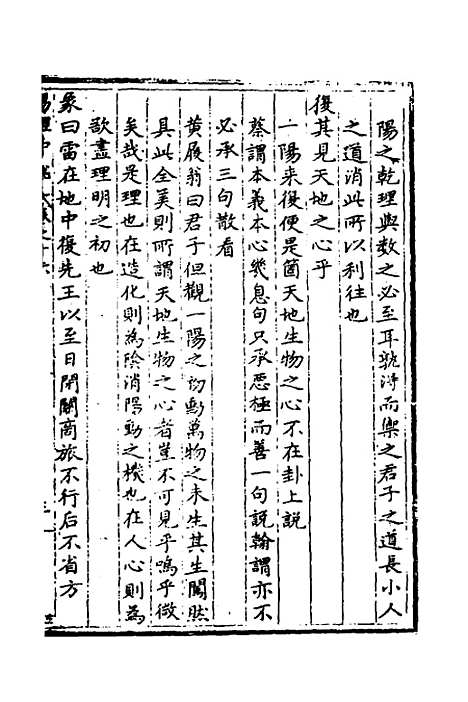 陽之乾理與数之必至耳孰淂而禦之君子之道長小人
之道消此所以利往也
復其見天地之心乎
一陽来復便是箇天地生物之心不在卦上說
蔡謂本義本心幾息句只承惡極而善一句説翰謂亦不
必承三句散看
黄履翁曰君子但觀一陽之初動萬物之未生其生闖然
具此全美則所謂天地生物之心者豈不可見乎嗚乎微
矣哉是理也在造化則為陰消陽動之機也在人心則為
欲盡理明之初也
象曰雷在地中復先王以至日閉關商旅不行后不省方